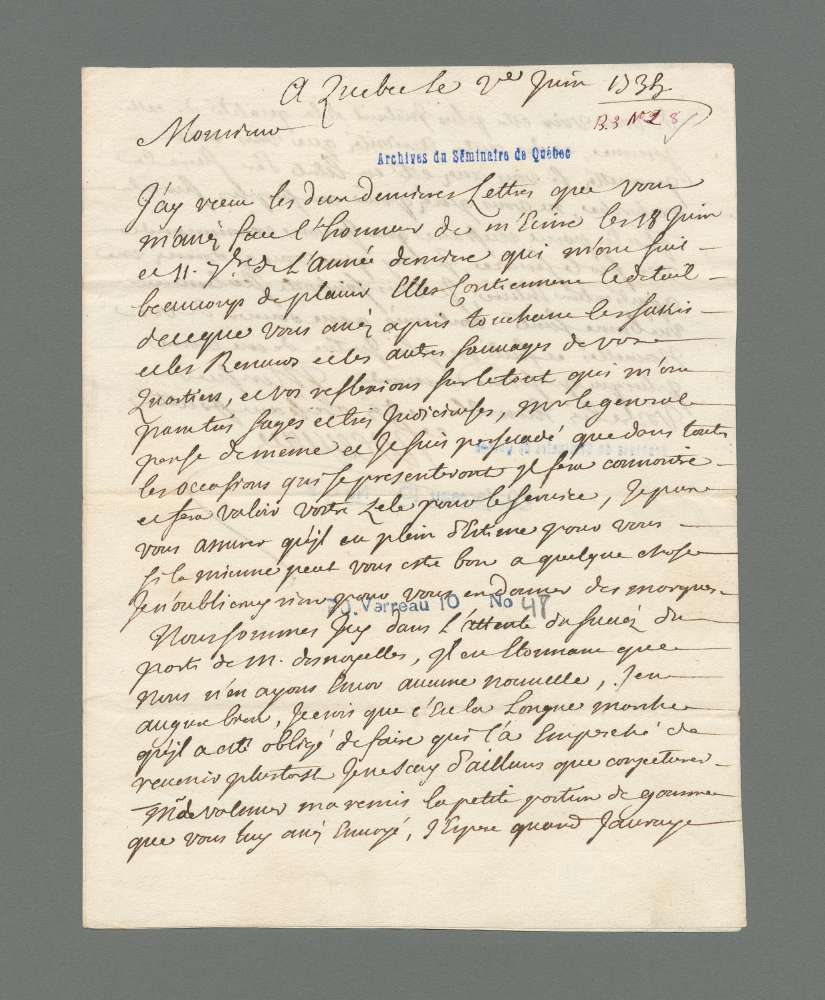 A Quebec le 2e Juin 1735
B.3 No 28
Monsieur
Archives du Séminaire de Québec
J'ay receu les deux dernieres Lettres que vous
m'avéz fait l'honneur de m'Ecrire les 18 Juin
et 11. 7bre de L'année derniere qui m'ont fait
beaucoup de plaisir Elles Contiennent le detail
de ce que vous avéz apris touchant les Sakis
et les Renards et les autres Sauvages de vos
Quartiers, et vos reflexions sur le tout qui m'ont
paru tres sages et tres Judicieuses, mr le general
pense de même et Je suis persuadé que dans touts
les occasions qui se presenteront Jl fera connoitre
et fera valoir votre Zele pour le service, Je puis
vous assurer qu'jl est plein d'Estime pour vous
Si la mienne peut vous estre bon a quelque chose
Je n'oublieray rien pour vous en donner des marques.
FO. Verreau 10 No 48
Nous sommes Jcy dans L'attente du succéz du
party de M. desnoyelles, Jl est Etonnant que
nous n'en ayons Encor aucune nouvelle, J'en
augure bien, Je crois que c'Est la Longue marche
qu'jl a esté obligé de faire qui l'a Empesché de
revenir plustost Je ne scay d'ailleurs que conjeturer
Mr de valmur m'a remis la petite portion de gomme
que vous luy avéz Envoyé, J'Espere quand J'auraye